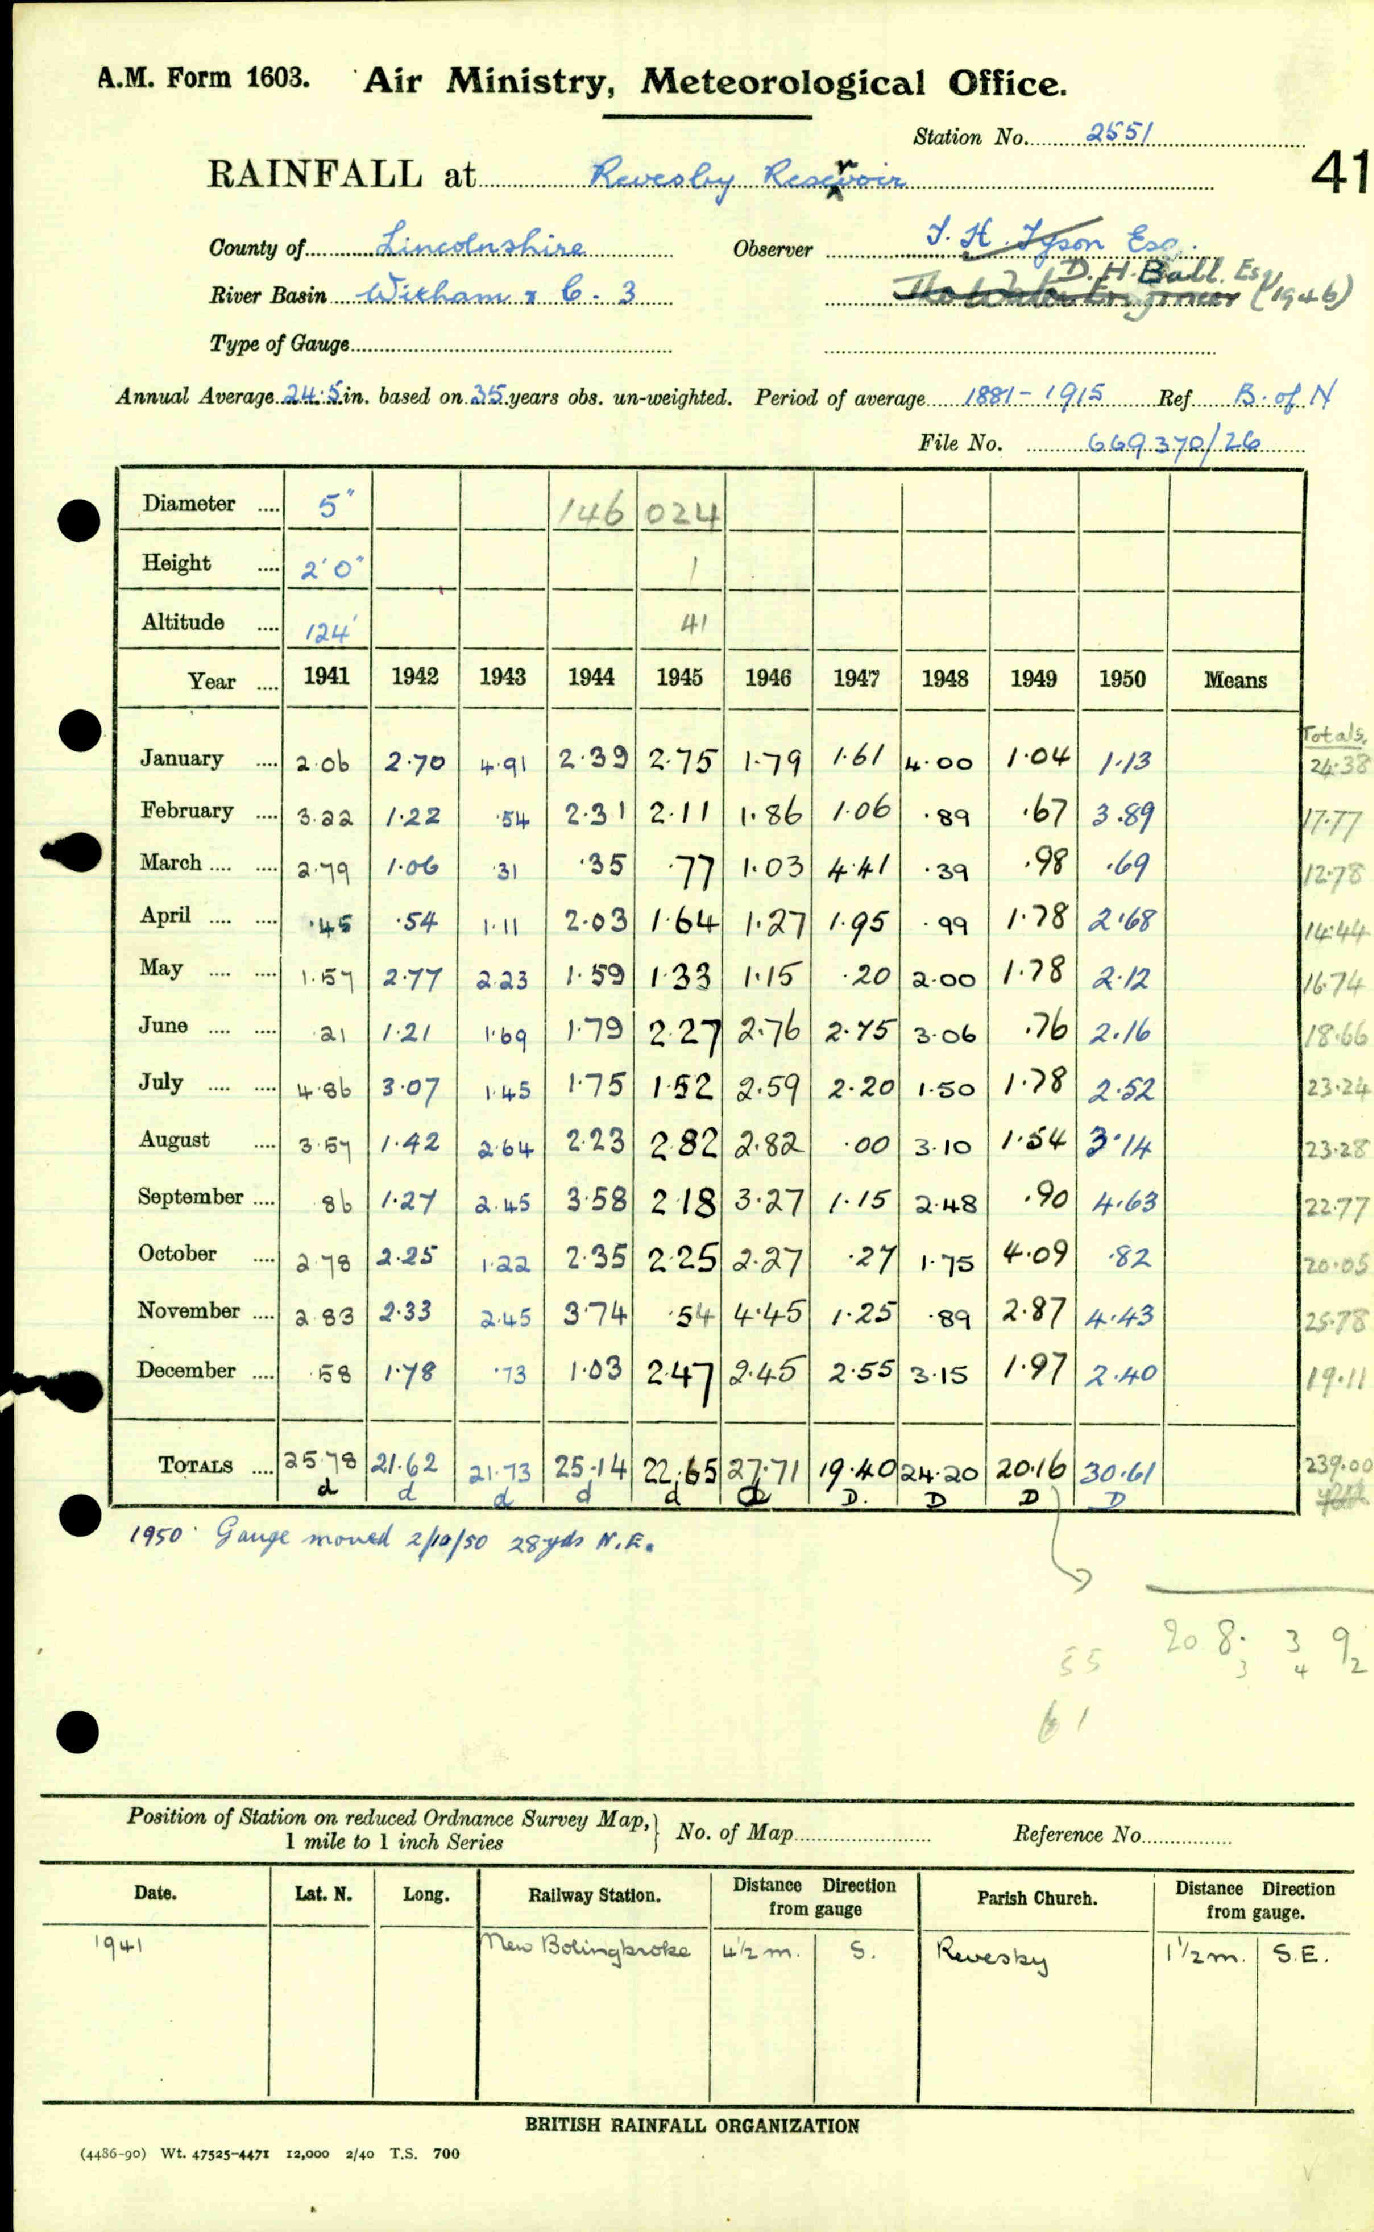 A.M. Form 1603. Air Ministry, Meteorological Office.
Station No. 2551
41
RAINFALL at Revesby Reservoir
County of Lincolnshire Observer T. H. Tyson Esq.
D. H. Ball. Esq
River Basin Witham & C. 3 The Water Engineer (1946)
Type of Gauge
Annual Average 24.5 in. based on 35 years obs. un-weighted. Period of average 1881-1915 Ref B. of N
File No. 669370/26
Diameter .... 5" 146 024
Height .... 2'0" 1
Altitude .... 124' 41
Year .... 1941 1942 1943 1944 1945 1946 1947 1948 1949 1950 Means
Totals.
January .... 2.06 2.70 4.91 2.39 2.75 1.79 1.61 4.00 1.04 1.13 24.38
February .... 3.22 1.22 .54 2.31 2.11 1.86 1.06 .89 .67 3.89 17.77
March .... .... 2.79 1.06 .31 .35 .77 1.03 4.41 .39 .98 .69 12.78
April .... .... .45 .54 1.11 2.03 1.64 1.27 1.95 .99 1.78 2.68 14.44
May .... .... 1.57 2.77 2.23 1.59 1.33 1.15 .20 2.00 1.78 2.12 16.74
June .... .... .21 1.21 1.69 1.79 2.27 2.76 2.75 3.06 .76 2.16 18.66
July .... .... 4.86 3.07 1.45 1.75 1.52 2.59 2.20 1.50 1.78 2.52 23.24
August .... 3.57 1.42 2.64 2.23 2.82 2.82 .00 3.10 1.54 3.14 23.28
September .... .86 1.27 2.45 3.58 2.18 3.27 1.15 2.48 .90 4.63 22.77
October .... 2.78 2.25 1.22 2.35 2.25 2.27 .27 1.75 4.09 .82 20.05
November .... 2.83 2.33 2.45 3.74 .54 4.45 1.25 .89 2.87 4.43 25.78
December .... .58 1.78 .73 1.03 2.47 2.45 2.55 3.15 1.97 2.40 19.11
TOTALS .... 25.78 21.62 21.73 25.14 22.65 27.71 19.40 24.20 20.16 30.61 239.00
d d d d d D D. D D D
1950 Gauge moved 2/10/50 28yds N.E.
20 8. 3 9
55 3 4 2
61
Position of Station on reduced Ordnance Survey Map, } No. of Map Reference No.
1 mile to 1 inch Series
Date. Lat. N. Long. Railway Station. Distance Direction from gauge Parish Church. Distance Direction from gauge.
1941 New Bolingbroke 4½ m. S. Revesby 1½ m. S.E.
BRITISH RAINFALL ORGANIZATION
(4486-90) Wt. 47525-4471 12,000 2/40 T.S. 700